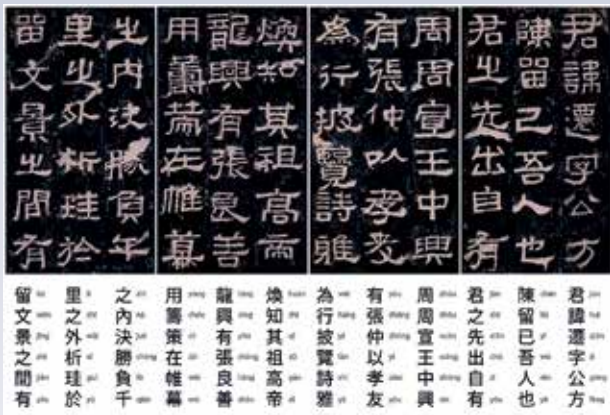 君諱遷字公方
陳留己吾人也
君之先出自有
周周宣王中興
有張仲以孝友
為行披覽詩雅
煥知其祖高帝
龍興有張良善
用籌策在帷幕
之內決勝負千
里之外析珪於
留文景之間有
君諱遷字公方
陳留已吾人也
君之先出自有
周周宣王中興
有張仲以孝友
為行披覽詩雅
煥知其祖高帝
龍興有張良善
用籌策在帷幕
之內決勝負千
里之外析珪於
留文景之間有